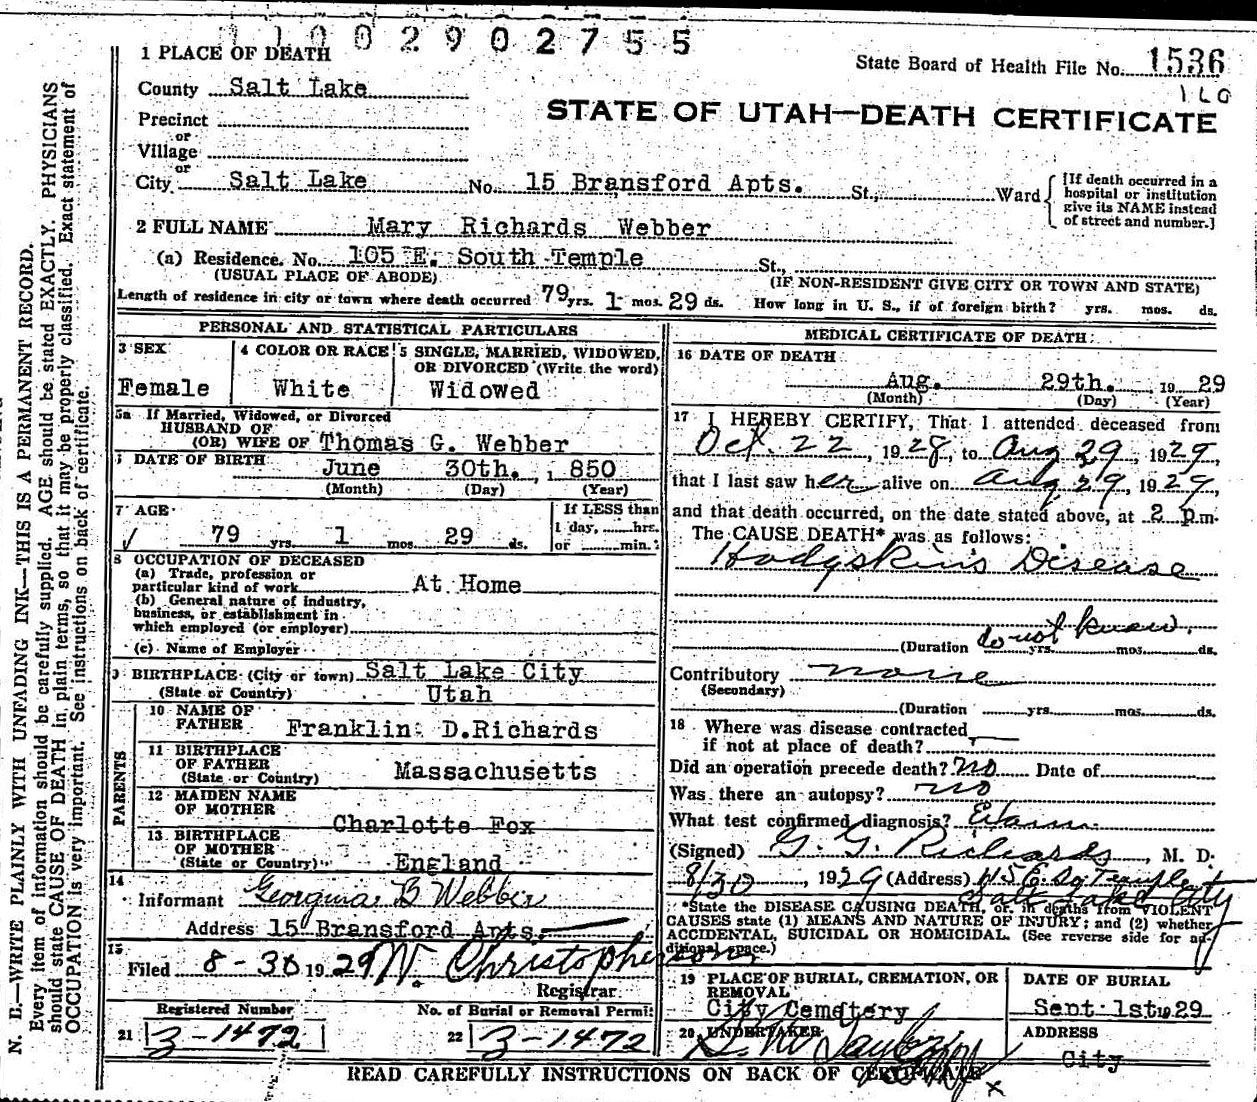 1 1 0 0 2 9 0 2 7 5 5
State Board of Health File No. 1536
160
STATE OF UTAH—DEATH CERTIFICATE
1 PLACE OF DEATH
County Salt Lake
Precinct
or
Village
or
City Salt Lake No. 15 Bransford Apts. St., Ward
[If death occurred in a
hospital or institution
give its NAME instead
of street and number.]
2 FULL NAME Mary Richards Webber
(a) Residence. No. 105 E. South Temple St.,
(USUAL PLACE OF ABODE) (IF NON-RESIDENT GIVE CITY OR TOWN AND STATE)
Length of residence in city or town where death occurred 79 yrs. 1 mos. 29 ds. How long in U. S., if of foreign birth? yrs. mos. ds.
PERSONAL AND STATISTICAL PARTICULARS
3 SEX
Female
4 COLOR OR RACE
White
5 SINGLE, MARRIED, WIDOWED,
OR DIVORCED (Write the word)
Widowed
5a If Married, Widowed, or Divorced
HUSBAND OF
(OR) WIFE OF Thomas G. Webber
DATE OF BIRTH June 30th. , 1 850
(Month) (Day) (Year)
7 AGE
79 yrs. 1 mos. 29 ds.
If LESS than
1 day, hrs.
or min.
8 OCCUPATION OF DECEASED
(a) Trade, profession or
particular kind of work At Home
(b) General nature of industry,
business, or establishment in
which employed (or employer)
(c) Name of Employer
9 BIRTHPLACE (City or town) Salt Lake City
(State or Country) Utah
PARENTS
10 NAME OF
FATHER Franklin D. Richards
11 BIRTHPLACE
OF FATHER
(State or Country) Massachusetts
12 MAIDEN NAME
OF MOTHER
Charlotte Fox
13 BIRTHPLACE
OF MOTHER
(State or Country) England
14
Informant Georgina B Webber
Address 15 Bransford Apts.
15
Filed 8-30 1929 W. Christopherson
Registrar
Registered Number
21 3-1472
No. of Burial or Removal Permit
22 3-1472
MEDICAL CERTIFICATE OF DEATH
16 DATE OF DEATH
Aug. 29th. 19 29
(Month) (Day) (Year)
17 I HEREBY CERTIFY, That I attended deceased from
Oct. 22, 1928, to Aug 29, 1929,
that I last saw her alive on Aug 29, 1929,
and that death occurred, on the date stated above, at 2 p.m.
The CAUSE DEATH* was as follows:
Hodgskin's Disease
(Duration do not know. yrs. mos. ds.
Contributory none
(Secondary)
(Duration yrs. mos. ds.
18 Where was disease contracted
if not at place of death?
Did an operation precede death? no Date of
Was there an autopsy? no
What test confirmed diagnosis? Exam.
(Signed) G. G. Richards, M. D.
8/30, 1929 (Address)
Salt Lake City
*State the DISEASE CAUSING DEATH, or, in deaths from VIOLENT
CAUSES state (1) MEANS AND NATURE OF INJURY; and (2) whether
ACCIDENTAL, SUICIDAL OR HOMICIDAL. (See reverse side for ad-
ditional space.)
19 PLACE OF BURIAL, CREMATION, OR
REMOVAL
City Cemetery
DATE OF BURIAL
Sept 1st 19 29
20 UNDERTAKER
ADDRESS
City
READ CAREFULLY INSTRUCTIONS ON BACK OF CERTIFICATE
N. B.—WRITE PLAINLY WITH UNFADING INK—THIS IS A PERMANENT RECORD.
Every item of information should be carefully supplied. AGE should be stated EXACTLY. PHYSICIANS
should state CAUSE OF DEATH in plain terms, so that it may be properly classified. Exact statement of
OCCUPATION is very important. See instructions on back of certificate.